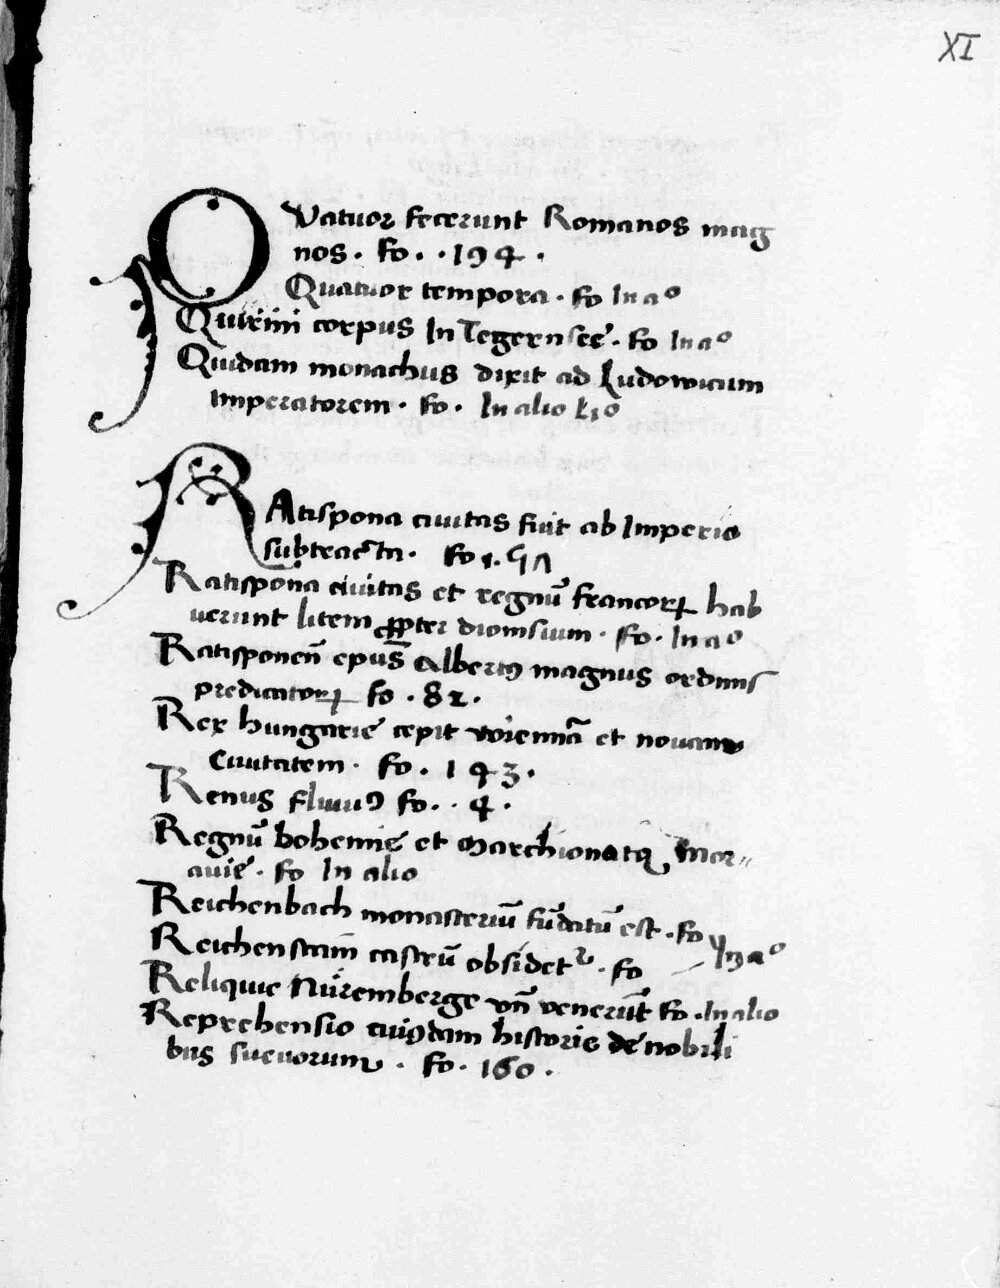 XI
QVatuor fecerunt Romanos mag
nos. fo. .194.
Quatuor tempora. fo In aº
Quirini corpus In Tegernsee. fo In aº
Quidam monachus dixit ad Ludowicum
Imperatorem. fo. In alio
RAtispona ciuitas fuit ab Imperio
subtracta. fo
Ratispona ciuitas et regnū francorꝝ hab
uerunt litem ꝓpter dionisium. fo. In aº
Ratisponeñ epūs Albertꝰ magnus ordinis
predicatorꝝ fo. 82.
Rex hungarie cepit wiennā et nouam
Ciuitatem. fo. 143.
Renus fluuiꝰ fo. .4.
Regnū bohemie et Marchionatꝰ Mor„
auie. fo In alio
Reichenbach monasteriū fūdatū est. fo In aº
Reichenstain castrū obsidetᵘʳ. fo
Reliquie Nüremberge vñ venerūt fo. In alio
Reprehensio cuiꝰdam historie de nobili
bus sueuorum. fo. 160.